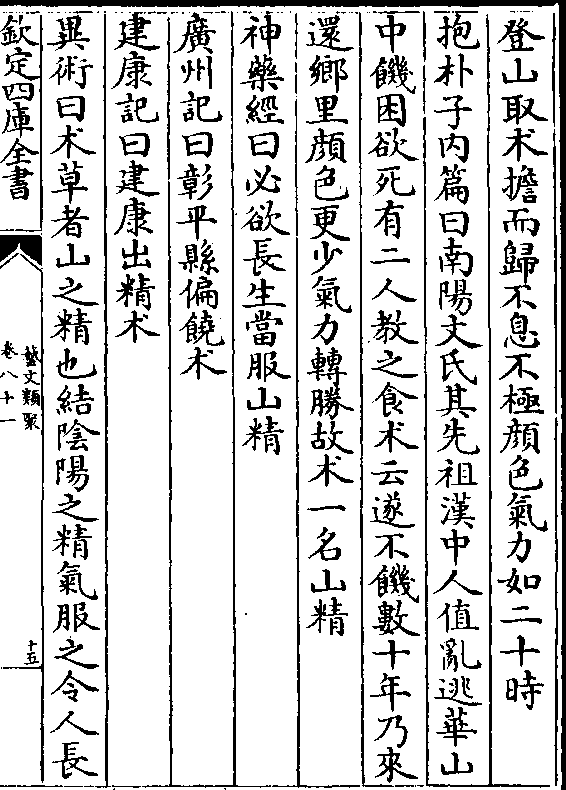 登山取术擔而歸不息不極顔色氣力如二十時
抱朴子内篇曰南陽文氏其先祖漢中人值亂逃華山
中饑困欲死有二人教之食术云遂不饑數十年乃來
還鄉里顔色更少氣力轉勝故术一名山精
神藥經曰必欲長生當服山精
廣州記曰彰平縣偏饒术
建康記曰建康出精术
異術曰术草者山之精也結陰陽之精氣服之令人長
欽定四庫全書
藝文類聚
卷八十一
十五